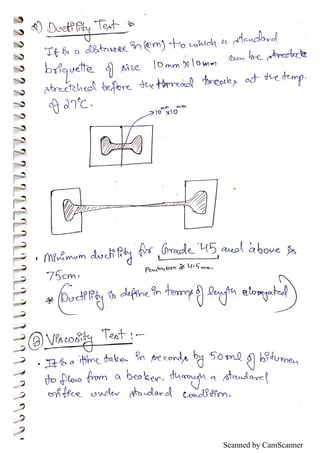 Ductility Test :-
It is a distance in (cm) to which a standard
briquette of size 10mm x 10mm can be
stretched before the thread breaks at the temp.
of 27°C.
10mm x 10mm
• Minimum ductility for Grade 45 and above is
75cm.
Penetration is 4.5mm
* (Ductility is define in terms of length elongated)
Viscosity Test :-
• It is a time taken in seconds by 50ml of bitumen
to flow from a beaker, through a standard
orifice under standard condition.
Scanned by CamScanner